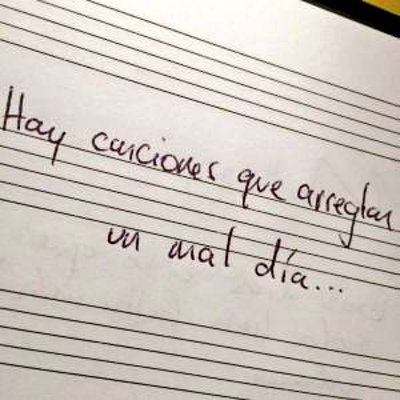 Hay canciones que arreglan
un mal día...